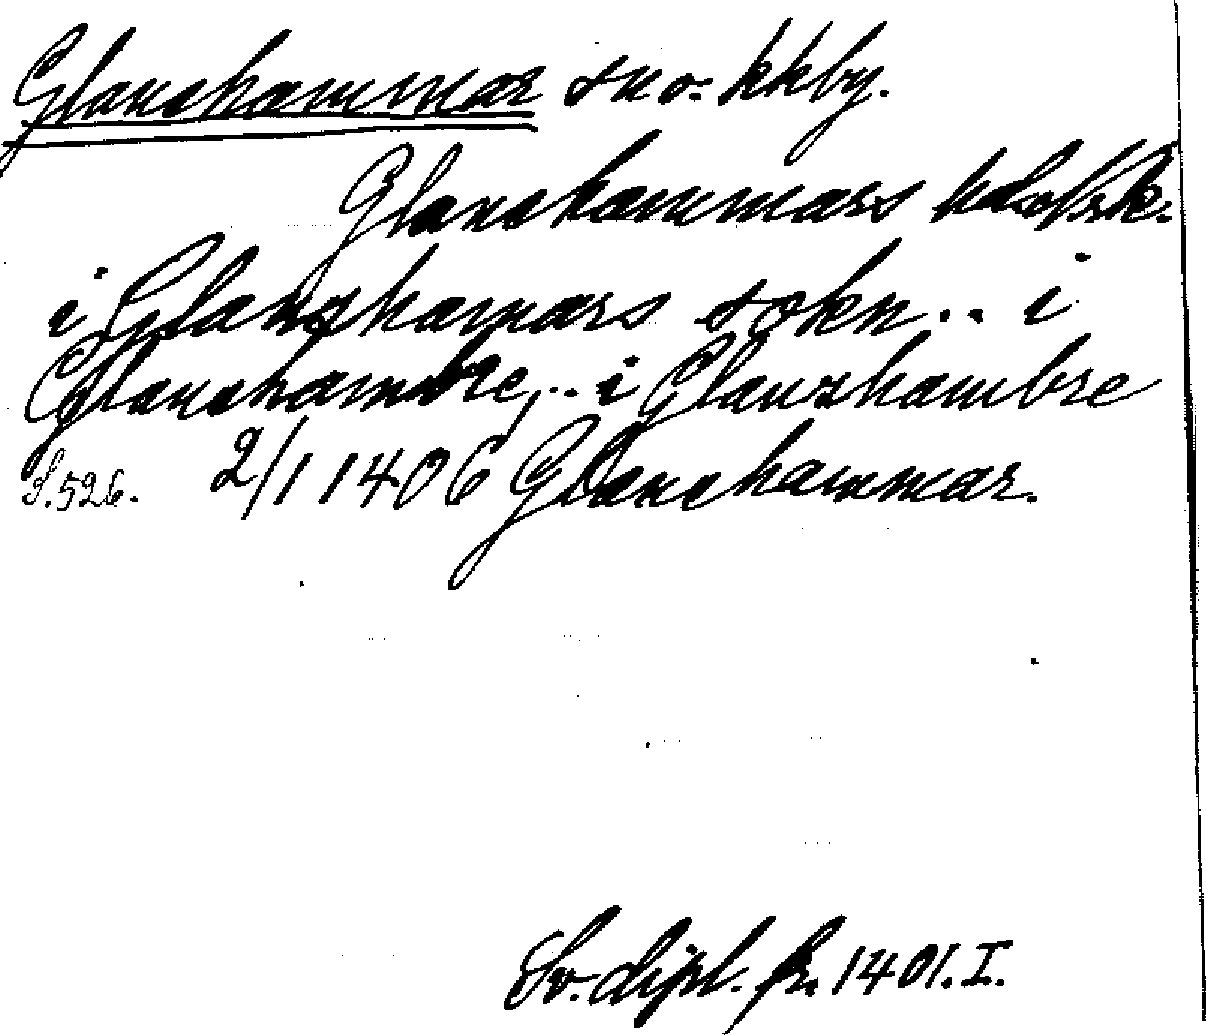 Glanshammar sn o. kkby.
Glanshammars
i Glanshamars sokn.. i
Glanshambre,.. i Glanshambre
S. 526. 2/1 1406 Glanshammar.
Sv. dipl. fr. 1401. I.